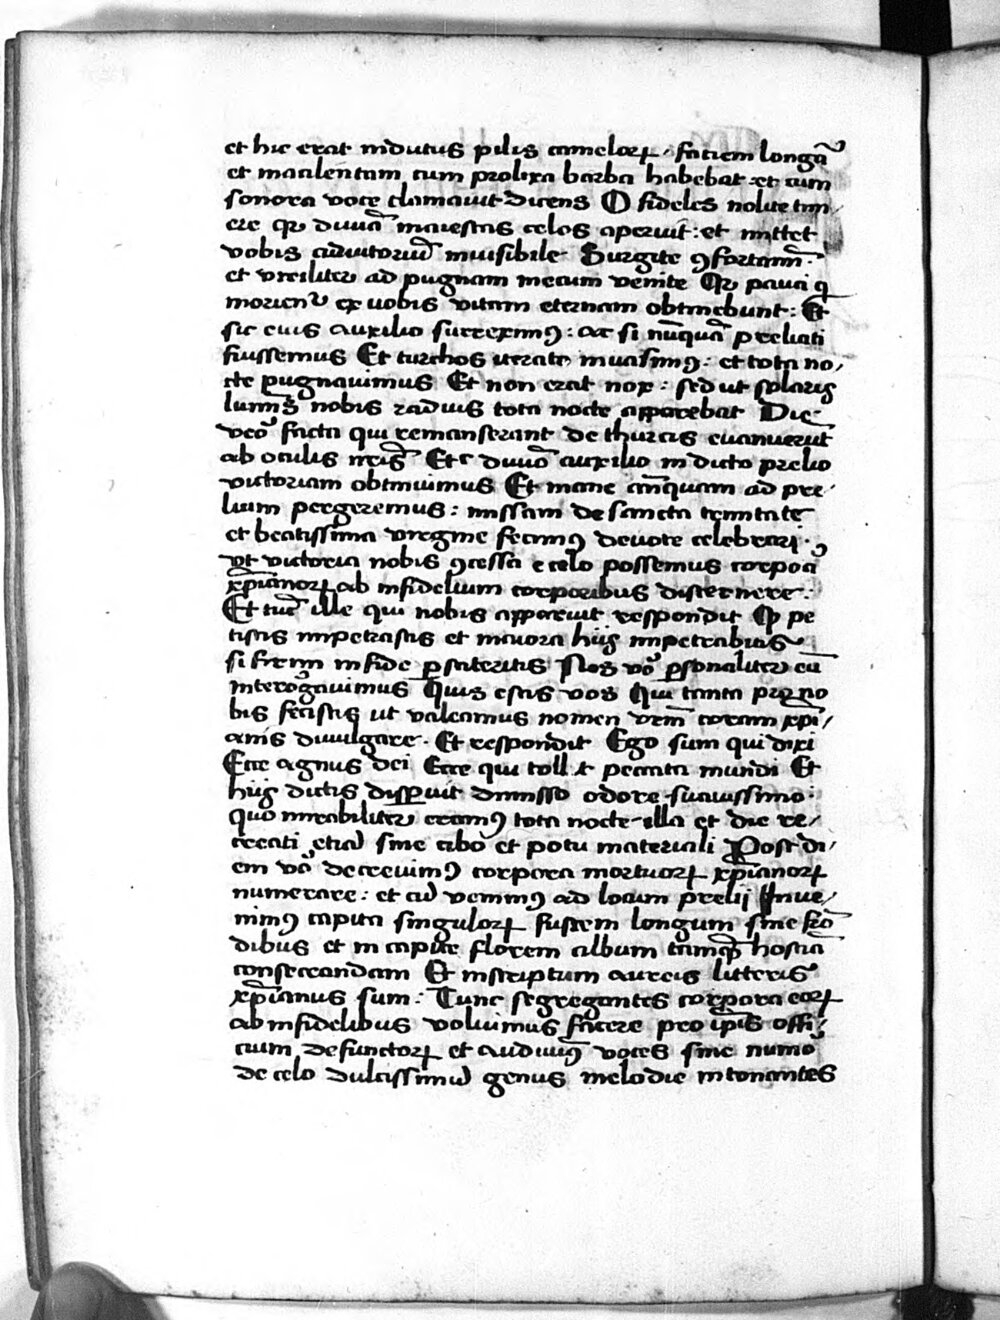 et hic erat indutus pilis camelorꝝ · faciem longā
et macilentam cum prolixa barba habebat : et cum
sonora voce clamauit dicens O fideles nolite tim/
ere qꝛ diuīa maiestas celos aperuit : et mittet
vobis adiutoriū inuisibile Surgite ꝯfortamī
et viriliter ad pugnam mecum venite Qꝛ pauci q
morient᷑ ex uobis vitam eternam obtinebunt : Et
sic eius auxilio surreximꝰ : ac si nūquā preliati
fuissemus Et turchos uerate inuasimꝰ : et tota no/
cte pugnauimus Et non erat nox : sed ut solaris
luminis nobis radius tota nocte apparebat Die
vero facta qui remanserant de thurcis euanuerūt
ab oculis nr̄is Et diuīo auxilio in dicto prelio
victoriam obtinuimus Et mane anq̄uam ad pre/
lium pergeremus : missam de sancta trinitate
et beatissima virgine fecimꝰ deuote celebrari ·
vt victoria nobis ꝯcessa e celo possemus corpora
xp̄ianorꝝ ab infidelium corporibus discernere :
Et tūc ille qui nobis apparuit respondit Qꝛ pe
tistis impetrastis et maiora hijs impetrabitis
si firmi in fide ꝑstiteritis Nos vo ꝑsonaliter eū
interogauimus Quis estis vos Qui tanta pro no
bis fecistis ut valeamus nomen vrm̄ coram xpi/
anis diuulgare · Et respondit Ego sum qui dixi
Ecce agnus dei Ecce qui tollit peccata mundi Et
hijs dictis disparuit dimisso odore suauissimo ·
quo mirabiliter eramꝰ tota nocte illa et die re/
creati etiā sine cibo et potu materiali Post di/
em vo decreuimꝰ corpora mortuorꝝ xp̄ianorꝝ
numerare : et cū venimꝰ ad locum prelij Inue/
nimꝰ capita singulorꝝ fustem longum sine frō
dibus et in capite florem album tamꝙ hostiā
consecrandam Et inscriptum aureis litteris
xp̄ianus sum : Tunc segregantes corpora eorꝝ
ab infidelibus voluimus facere pro ip̄is offi/
cium defunctorꝝ et audiuimꝰ voces sine numo
de celo dulcissimū genus melodie intonantes